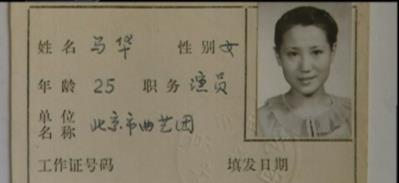 姓名 马华 性别 女
年龄 25 职务 演员
单位名称 北京市曲艺团
工作证号码 填发日期